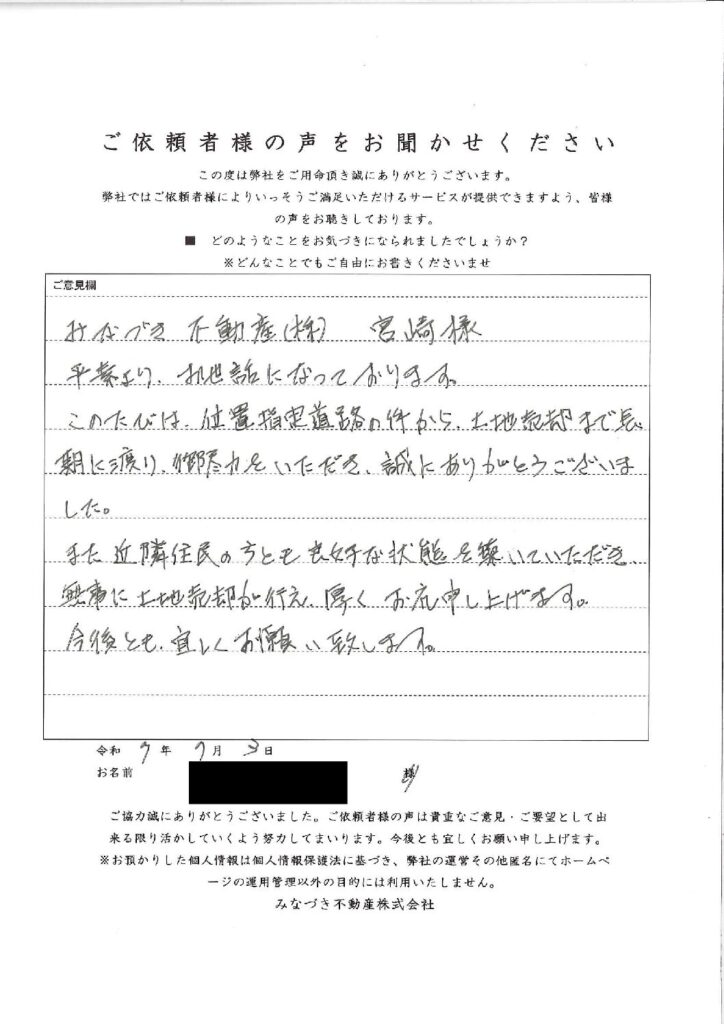 ご依頼者様の声をお聞かせください
この度は弊社をご用命頂き誠にありがとうございます。
弊社ではご依頼者様によりいっそうご満足いただけるサービスが提供できますよう、皆様
の声をお聴きしております。
■ どのようなことをお気づきになられましたでしょうか？
※どんなことでもご自由にお書きくださいませ
ご意見欄
みなづき不動産(株) 宮崎様
平素より、お世話になっております。
このたびは、位置指定道路の件から、土地売却まで長
期に渡り、御尽力をいただき、誠にありがとうございま
した。
また近隣住民の方とも良好な状態を築いていただき、
無事に土地売却が行え、厚くお礼申し上げます。
今後とも、宜しくお願い致します。
令和 7 年 7 月 3 日
お名前 様
ご協力誠にありがとうございました。ご依頼者様の声は貴重なご意見・ご要望として出
来る限り活かしていくよう努力してまいります。今後とも宜しくお願い申し上げます。
※お預かりした個人情報は個人情報保護法に基づき、弊社の運営その他匿名にてホームペ
ージの運用管理以外の目的には利用いたしません。
みなづき不動産株式会社